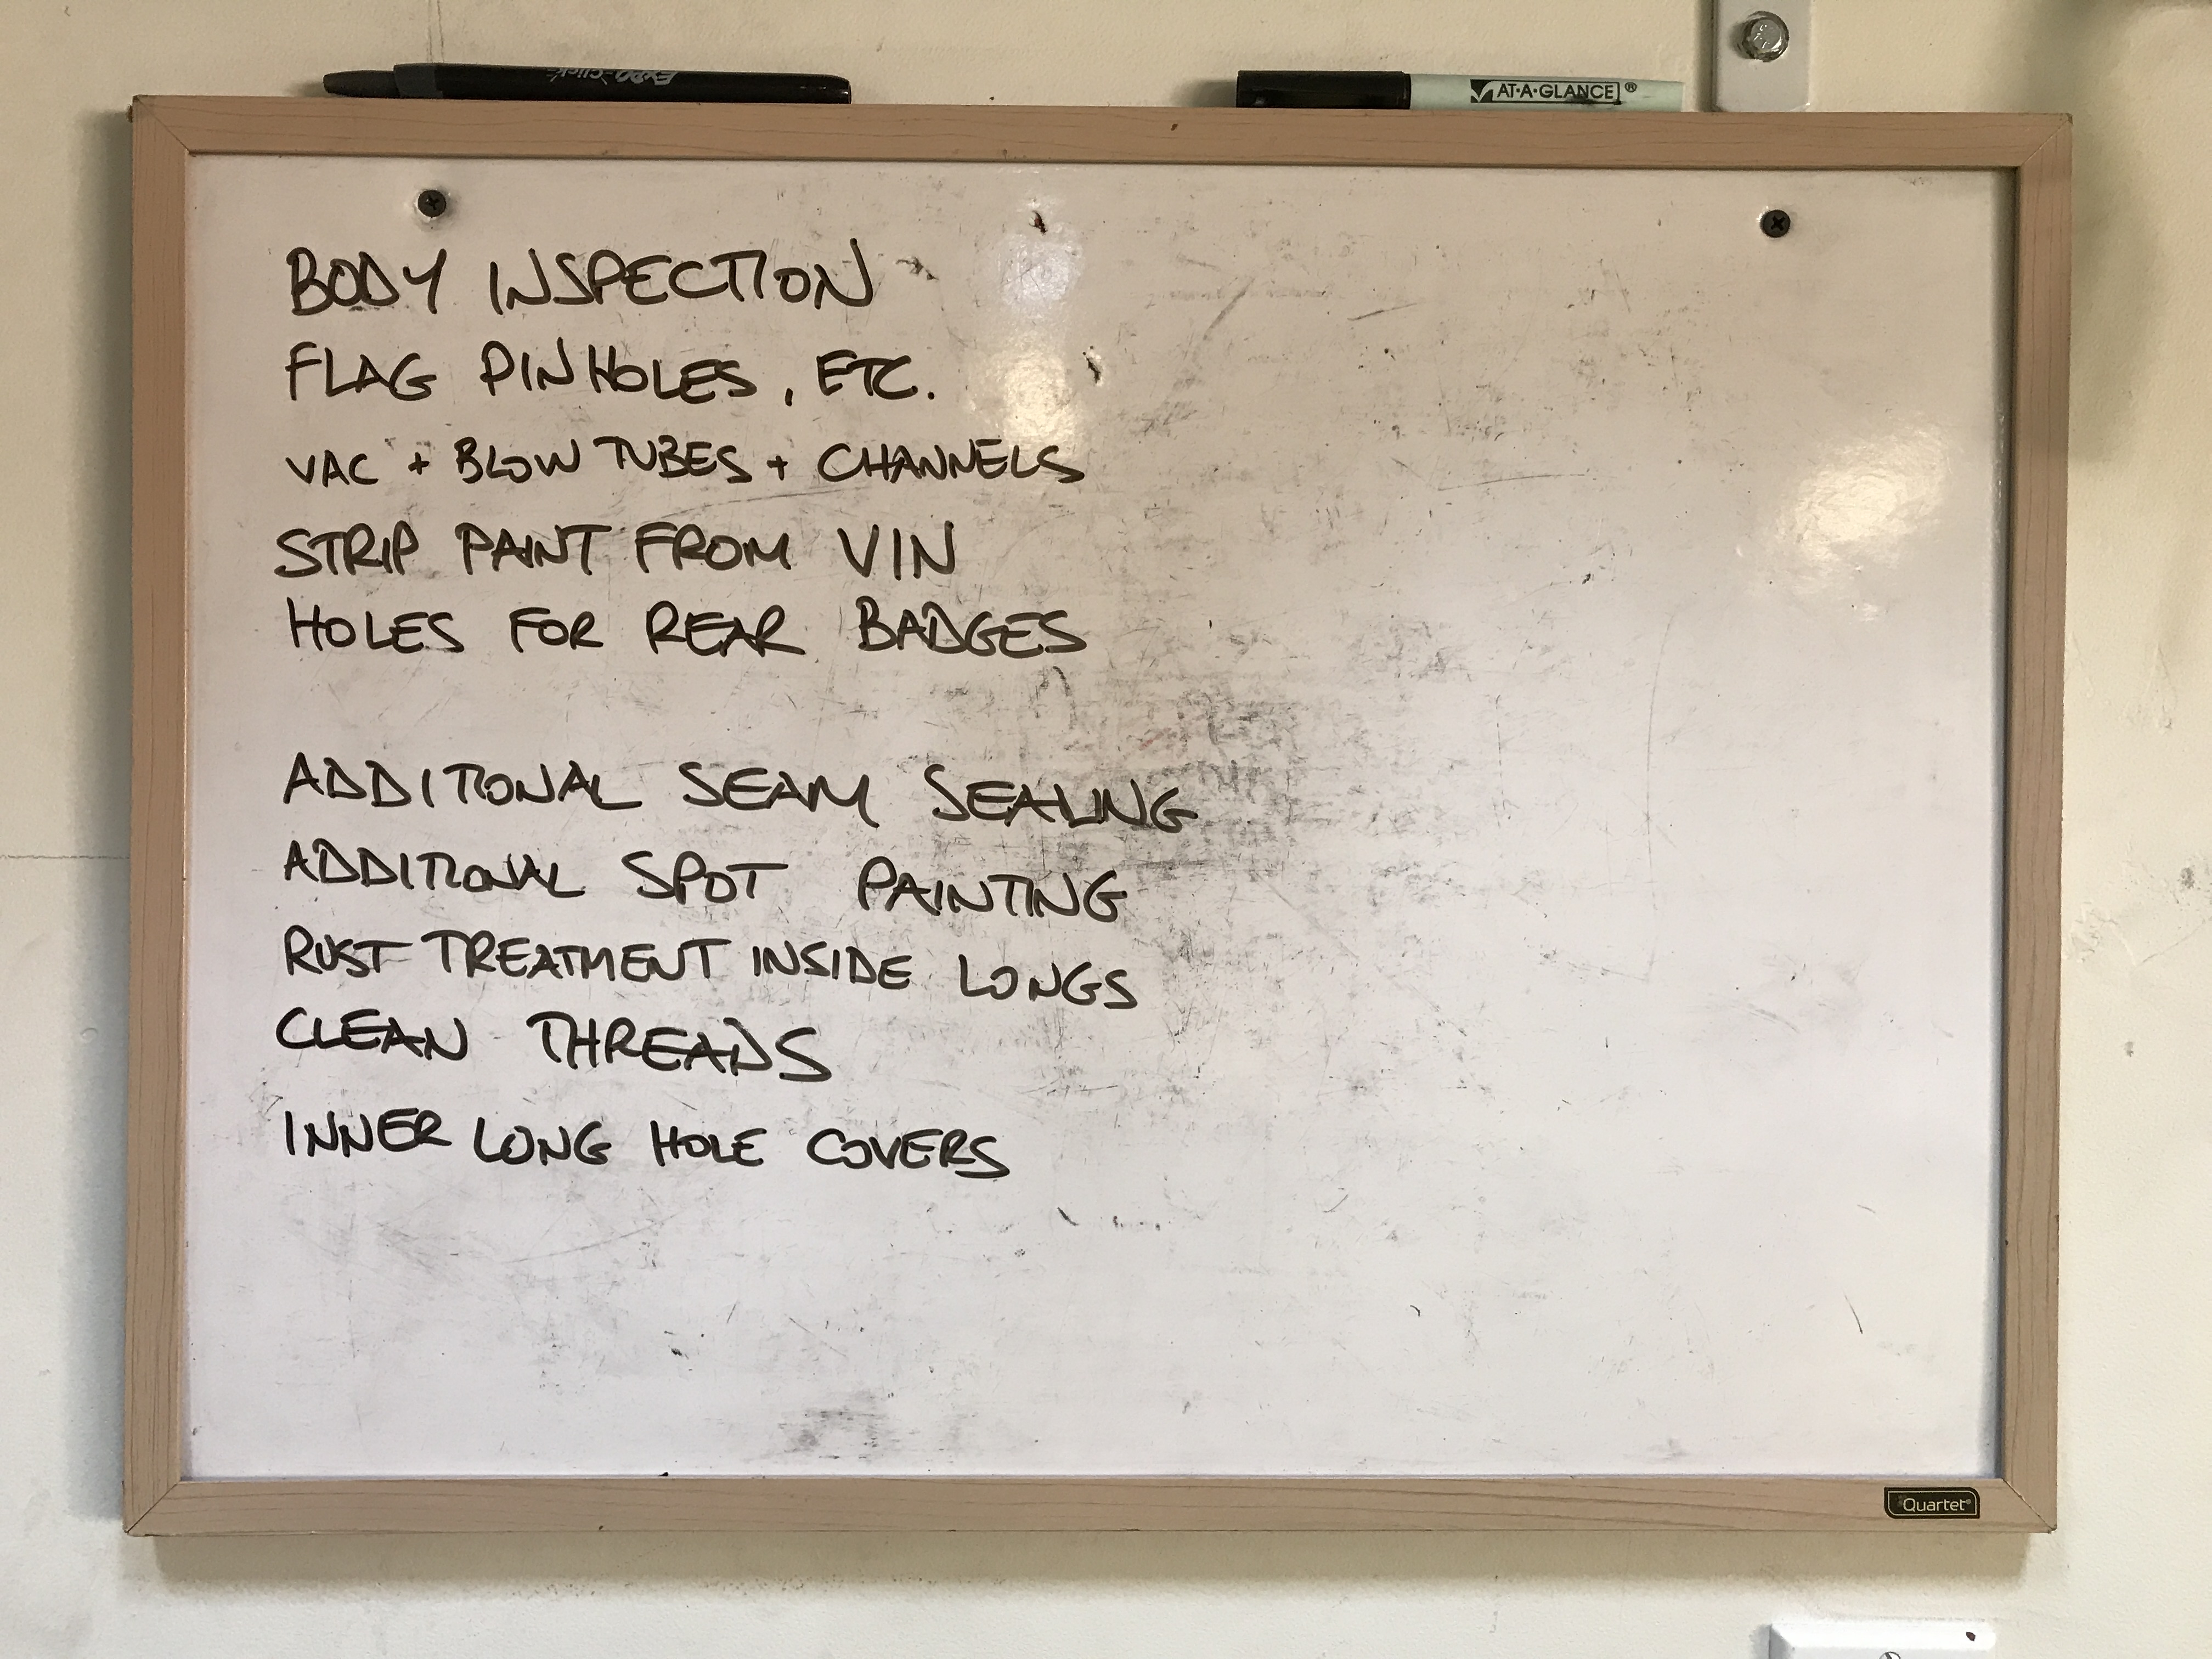 Expo Click
AT-A-GLANCE®
BODY INSPECTION
FLAG PINHOLES, ETC.
VAC + BLOW TUBES + CHANNELS
STRIP PAINT FROM VIN
HOLES FOR REAR BADGES
ADDITIONAL SEAM SEALING
ADDITIONAL SPOT PAINTING
RUST TREATMENT INSIDE LONGS
CLEAN THREADS
INNER LONG HOLE COVERS
Quartet®